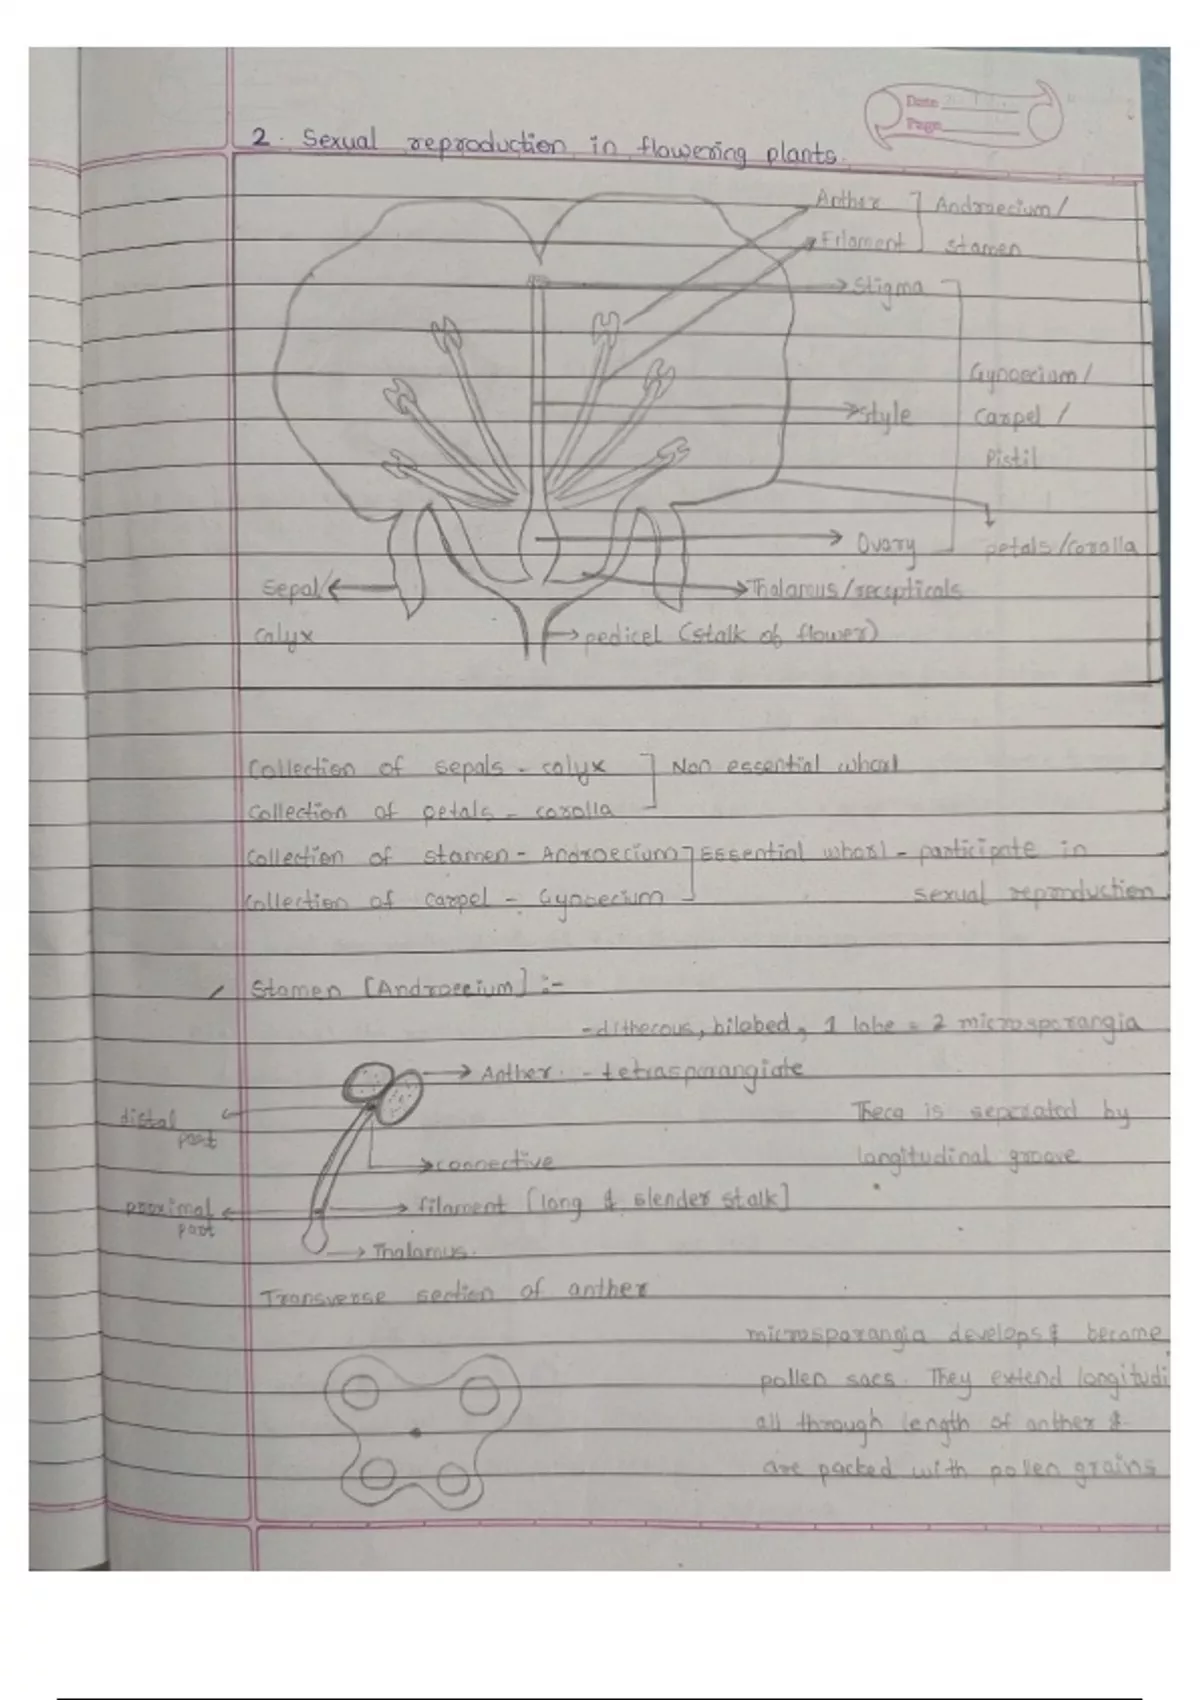 Date
Page
2. Sexual reproduction in flowering plants.
Anther ] Androecium/
Filament stamen
Stigma
Gynoecium/
style carpel /
Pistil
Ovary petals/corolla
Sepal/ Thalamus/recepticals
calyx pedicel (stalk of flower)
Collection of sepals - calyx ] Non essential whorl
Collection of petals - corolla
Collection of stamen - Androecium ] Essential whorl - participate in
Collection of carpel - Gynoecium sexual reproduction
Stamen [Androecium] :-
- dithecous, bilobed, 1 lobe = 2 microsporangia
Anther. - tetrasporangiate
distal part
Theca is seperated by
connective longitudinal groove
proximal part
filament [long & slender stalk]
Thalamus.
Transverse section of anther
microsporangia develops & become
pollen sacs. They extend longitudi
all through length of anther &
are packed with pollen grains